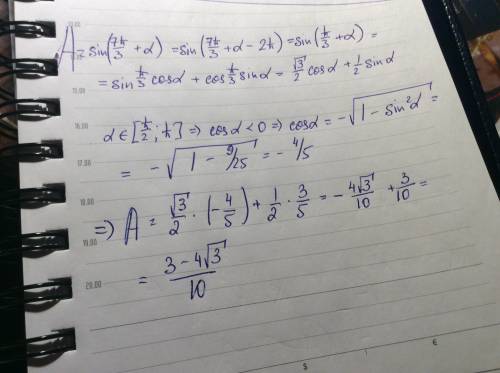 A = sin(7π/3 + α) = sin(7π/3 + α - 2π) = sin(π/3 + α) =
= sin π/3 cosα + cos π/3 sinα = √3/2 cosα + 1/2 sinα
15.00
α ∈ [π/2 ; π] => cosα < 0 => cosα = -√(1 - sin²α) =
16.00
= -√(1 - 9/25) = -4/5
17.00
18.00
=> A = √3/2 · (-4/5) + 1/2 · 3/5 = -4√3/10 + 3/10 =
19.00
= (3 - 4√3)/10
20.00
$ €